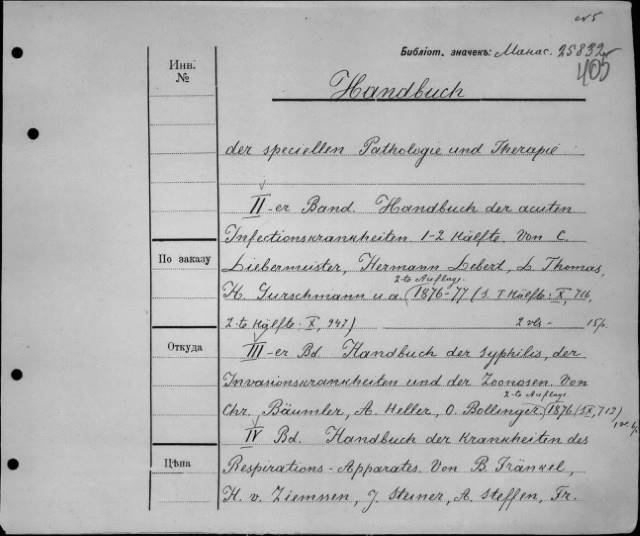 №5
Библіот. значекъ: Манас. 25832
405
Инв.
№
Handbuch
der speciellen Pathologie und Therapie
II-er Band. Handbuch der acuten
Infectionskrankheiten 1-2 Hälfte. Von C.
По заказу
Liebermeister, Hermann Lebert, L. Thomas,
2-te Auflage.
H. Curschmann u.a. (1876-77 (1. T Hälfte: X, 716,
2-te Hälfte: X, 947)
Откуда
III-er Bd. Handbuch der Syphilis, der
Invasionskrankheiten und der Zoonosen. Von
2-te Auflage
Chr. Bäumler, A. Heller, O. Bollinger. 1876 (IX, 712)
IV Bd. Handbuch der Krankheiten des
Цѣна
Respirations-Apparates. Von B. Fränkel,
H. v. Ziemssen, J. Steiner, A. Steffen, Fr.